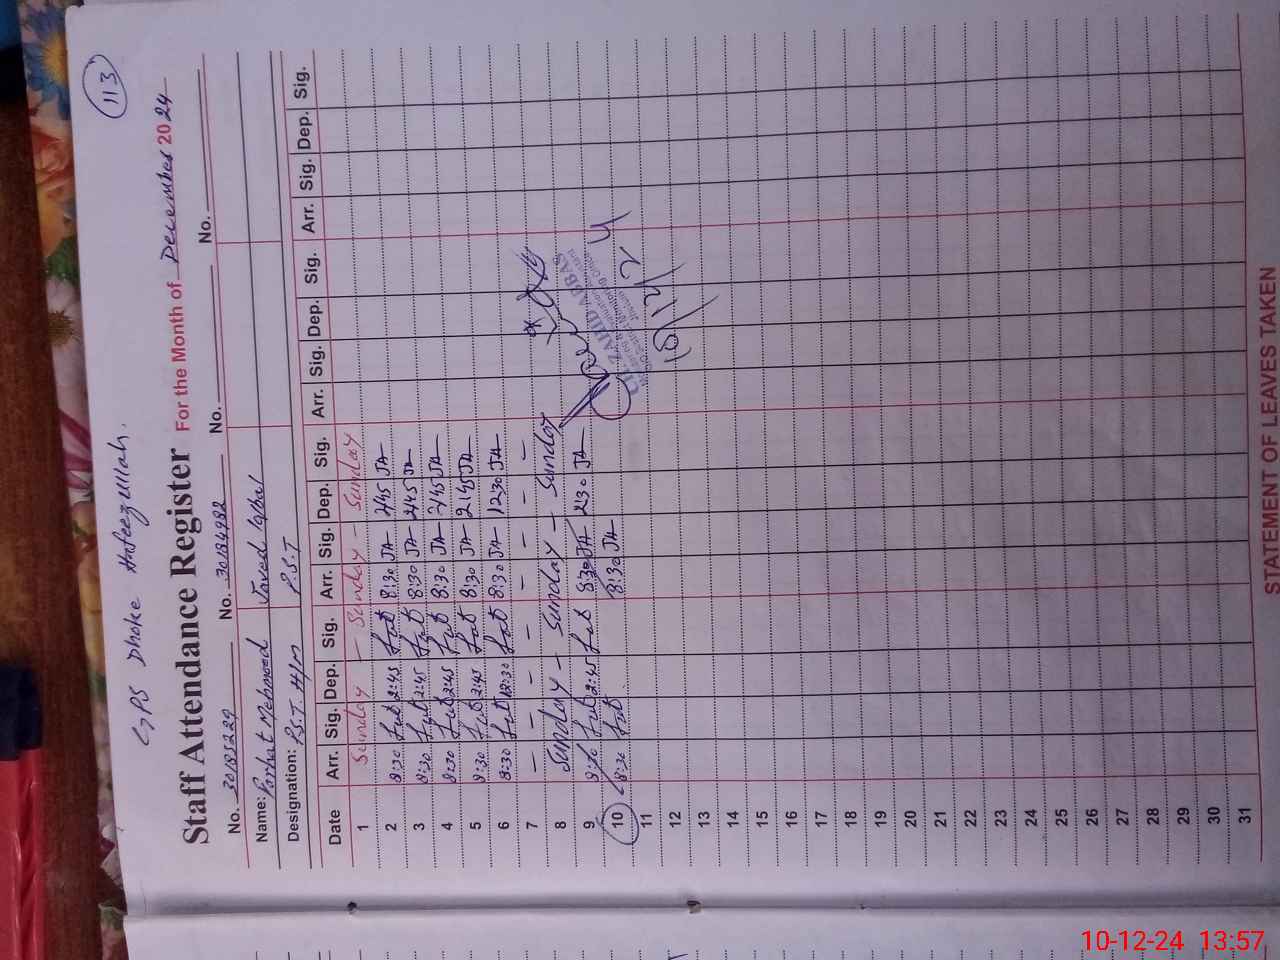 113
GPS Dhoke Hafeezullah.
Staff Attendance Register For the Month of December 2024
No. 30185229 No. 30184982 No. No.
Name: Farhat Mehmood Javed Iqbal
Designation: P.S.T. H/M P.S.T
Date Arr. Sig. Dep. Sig. Arr. Sig. Dep. Sig. Arr. Sig. Dep. Sig. Arr. Sig. Dep. Sig.
1 Sunday – Sunday – Sunday
2 8:30 2:45 8:30 JA 2:45 JA
3 8:30 2:45 8:30 JA 2:45 JA
4 8:30 2:45 8:30 JA 2:45 JA
5 8:30 2:45 8:30 JA 2:45 JA
6 8:30 12:30 8:30 JA 12:30 JA
7 – – – – – – – –
8 Sunday – Sunday – Sunday
9 8:30 2:45 8:30 JA 2:30 JA
10 8:30 8:30 JA
11
12
13
14
15
16
17
18
19
20
21
22
23
24
25
26
27
28
29
30
31
ZAHID ABBAS
10/12/24
STATEMENT OF LEAVES TAKEN
10-12-24 13:57